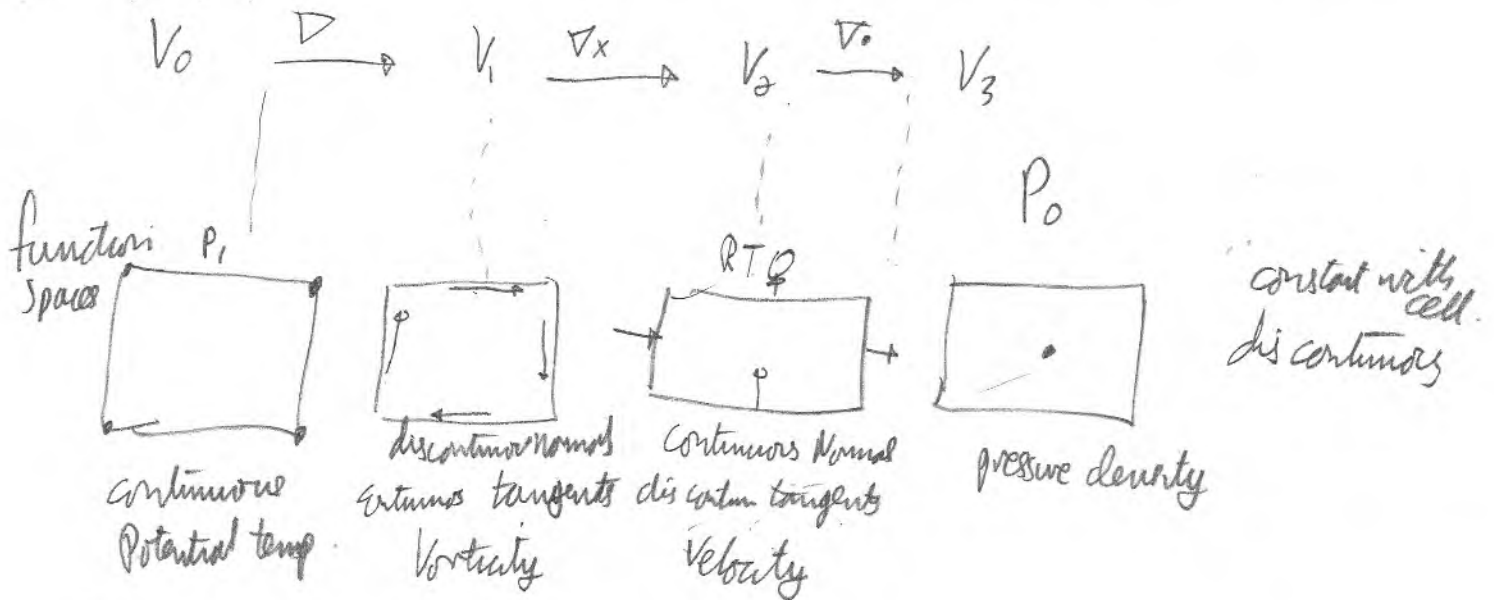 V₀ ∇ V₁ ∇x V₂ ∇• V₃
function
spaces
P₁
RT0
P₀
constant with
cell.
discontinuous
continuous
Potential temp.
discontinuous normals
continuous tangents
Vorticity
continuous Normal
discontin tangents
velocity
pressure density